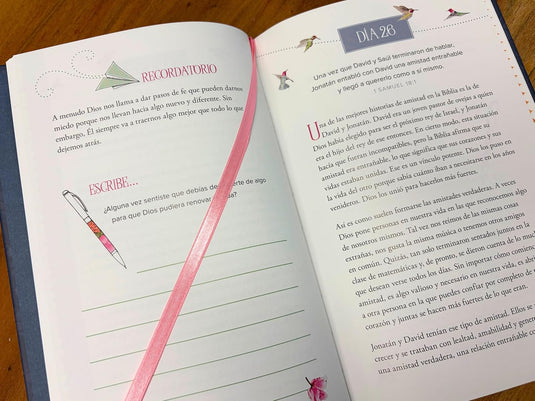 RECORDATORIO
A menudo Dios nos llama a dar pasos de fe que pueden darnos
miedo porque nos llevan hacia algo nuevo y diferente. Sin
embargo, Él siempre va a traernos algo mejor que todo lo que
dejemos atrás.
ESCRIBE...
¿Alguna vez sentiste que debías de erte de algo
para que Dios pudiera renovar ida?
DÍA 26
Una vez que David y Saúl terminaron de hablar,
Jonatán entabló con David una amistad entrañable
y llegó a quererlo como a sí mismo.
1 SAMUEL 18:1
Una de las mejores historias de amistad en la Biblia es la de
David y Jonatán. David era un joven pastor de ovejas a quien
Dios había elegido para ser el próximo rey de Israel, y Jonatán
era el hijo del rey de ese entonces. En cierto modo, esta situación
hacía que fueran incompatibles, pero la Biblia afirma que su
amistad era entrañable, lo que significa que sus corazones y sus
vidas estaban unidas. Ese es un vínculo potente. Dios los puso en
la vida del otro porque sabía cuánto iban a necesitarse en los años
venideros. Dios los unió para hacerlos más fuertes.
Así es como suelen formarse las amistades verdaderas. A veces
Dios pone personas en nuestra vida en las que reconocemos algo
de nosotros mismos. Tal vez nos reímos de las mismas cosas
extrañas, nos gusta la misma música o tenemos otros amigos
en común. Quizás, tan solo terminamos sentados juntos en la
clase de matemáticas y, de pronto, se dieron cuenta de lo mu
que desean verse todos los días. Sin importar cómo comience
amistad, es algo valioso y necesario en nuestra vida, es abri
a otra persona en la que puedes confiar por completo de
corazón y juntas se hacen más fuertes de lo que eran.
Jonatán y David tenían ese tipo de amistad. Ellos se
crecer y se trataban con lealtad, amabilidad y gener
una amistad verdadera, una relación entrañable co